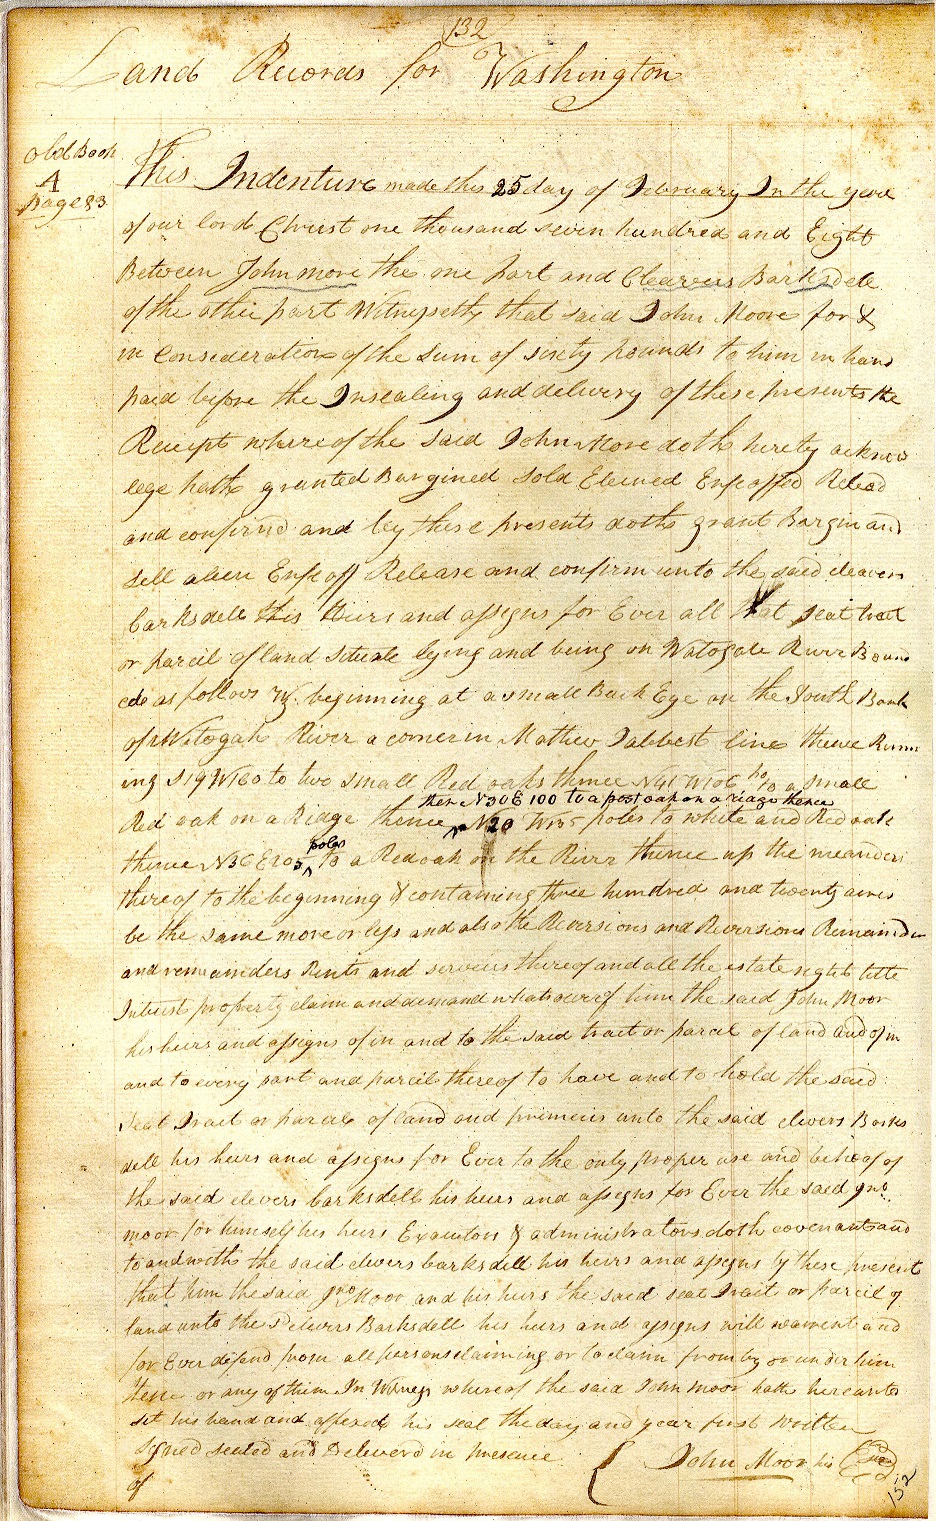 132
Land Records for Washington
Old Book
A
Page 83
This Indenture made this 25 day of February In the year
of our lord Christ one thousand seven hundred and Eight
Between John more the one part and Cleavers Barksdele
of the other part Witnesseth that said John Moore for &
in Consideration of the Sum of sixty pounds to him in hand
paid before the Insealing and delivery of these presents the
Receipt whereof the said John More doth hereby acknow
lege hath granted Bargined Sold Eliened Enfeoffed Relead
and confirmd and by these presents doth grant Bargin and
sell alien Enfeoff Release and confirm unto the said cleavers
barksdell his Heirs and assigns for Ever all that seat tract
or parcil of land situate lying and being on Watogale River Bound
ed as follows beginning at a small Buck Eye on the South Bank
of Watogah River a corner in Mathew Talbest line thence Runn
ing S 19 W 160 to two small Red oaks thence N 41 W 106 po to a small
then N 30 E 100 to a post oak on a ridge thence
Red oak on a Ridge thence N 20 W 135 poles to white and Red oak
poles
thence N 36 E 205 to a Red oak on the River thence up the meanders
thereof to the beginning & containing three hundred and twenty acres
be the same more or less and also the Reversions and Reversions Remainder
and remainders Rents and services thereof and all the estate right title
Interest property claim and demand whatsoever of him the said John Moor
his heirs and assigns of in and to the said tract or parcel of land and of in
and to every part and parcil thereof to have and to hold the said
Seat Tract or parcel of land and primeses unto the said clevers Barks
dell his heirs and assigns for Ever to the only proper use and behoof of
the said clevers barksdell his heirs and assigns for Ever the said Jno
moor for himself his heirs Executors & administrators doth covenant and
to and with the said clevers barksdell his heirs and assigns by these present
that him the said Jno Moor and his heirs the said seat Tract or parcil of
land unto the Clevers Barksdell his heirs and assigns will warrent and
for Ever defend from all persons claiming or to claim from by or under him
them or any of them In Witness whereof the said John moor hath hereunto
set his hand and affixed his seal the day and year first written
Signed sealed and Deliverd in presence
of
John Moor his seal
152